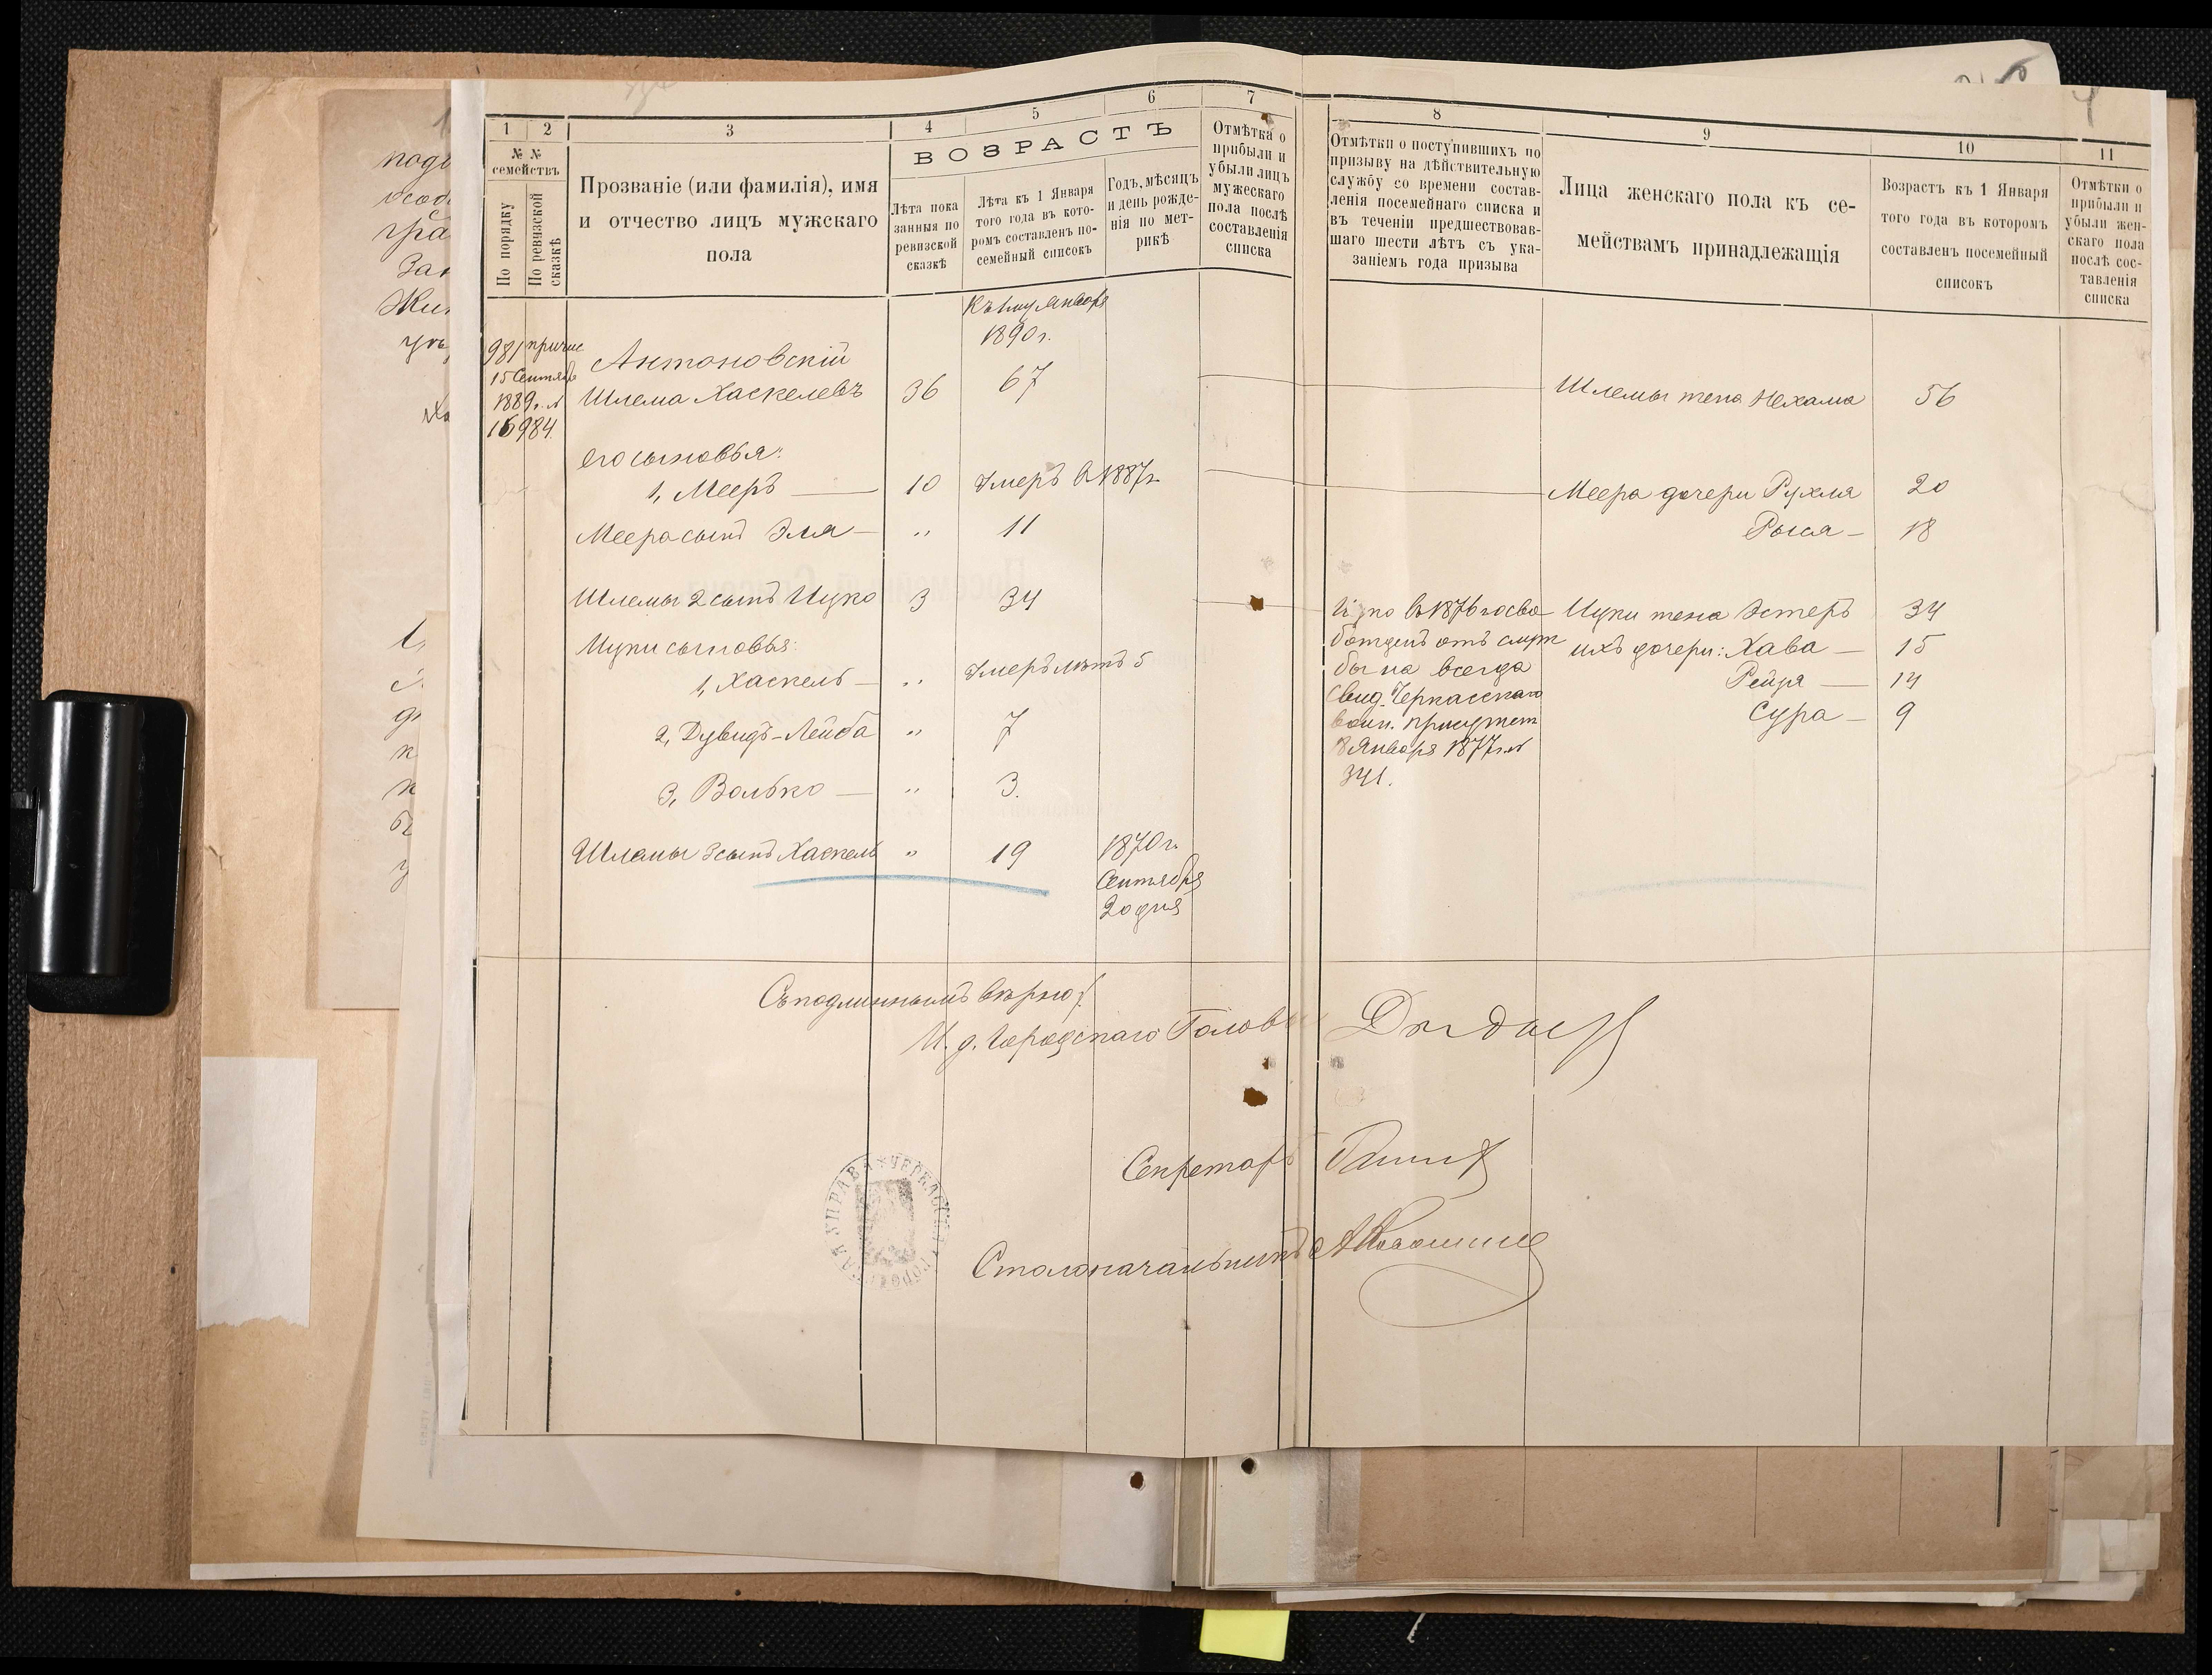 1
2
3
4
5
6
7
№ №
семействъ
По порядку
По ревизской сказкѣ
Прозваніе (или фамилія), имя
и отчество лицъ мужскаго
пола
ВОЗРАСТЪ
Лѣта пока
занныя по
ревизской
сказкѣ
Лѣта къ 1 Января
того года въ кото-
ромъ составленъ по-
семейный списокъ
Годъ, мѣсяцъ
и день рожде-
нія по мет-
рикѣ
Отмѣтка о
прибыли и
убыли лицъ
мужескаго
пола послѣ
составленія
списка
8
9
10
11
Отмѣтки о поступившихъ по
призыву на дѣйствительную
службу со времени состав-
ленія посемейнаго списка и
въ теченіи предшествовав-
шаго шести лѣтъ съ ука-
заніемъ года призыва
Лица женскаго пола къ се-
мействамъ принадлежащія
Возрастъ къ 1 Января
того года въ которомъ
составленъ посемейный
списокъ
Отмѣтки о
прибыли и
убыли жен-
скаго пола
послѣ сос-
тавленія
списка
Къ 1му Января
1890 г.
981 причис
15 Сентября
1889 г. №
16984.
Антоновскій
Шлема Хаскелевъ 36 67
Шлемы жена Нехама 56
его сыновья:
1, Мееръ — 10 Умеръ въ 1887 г.
Меера дочери Рухля 20
Меера сынъ Эля — „ 11
Рыся — 18
Шлемы 2 сынъ Ицко 3 34
Ицки жена Эстеръ 34
Ицки сыновья:
ихъ дочери: Хава — 15
1, Хаскель — „ Умеръ лѣтъ 5
Рейзя — 14
2, Дувидъ-Лейба „ 7
Сура — 9
3, Волько — „ 3.
Ицко въ 1876 г осво
божденъ отъ служ
бы на всегда
Свид. Черкасскаго
воин. присутст
18 Января 1877 г. №
341.
Шлемы 3 сынъ Хаскель „ 19 1870 г.
Сентября
20 дня
Съ подлиннымъ вѣрно:
И. д. Городскаго Головы
Секретарь
Столоначальникъ
ЧЕРКАССКАЯ ГОРОДСКАЯ УПРАВА